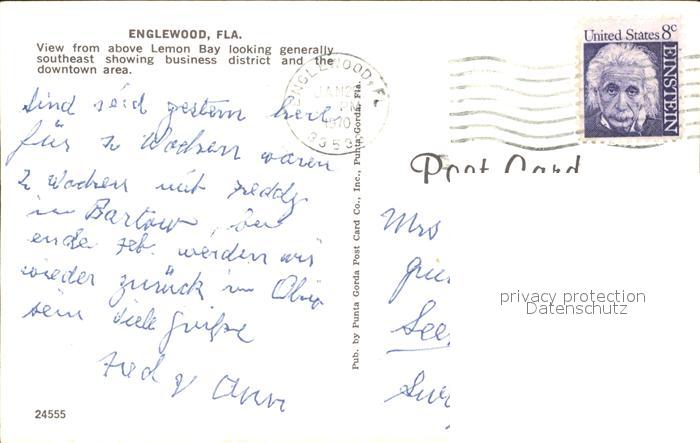 ENGLEWOOD, FLA.
View from above Lemon Bay looking generally
southeast showing business district and the
downtown area.
Sind seid gestern hier
für 2 Wochen waren
2 Wochen mit Freddy
in Bartow, bei
ende Feb. werden wir
wieder zurück in Ohio
sein viele Grüße
Fred &
24555
Pub. by Punta Gorda Post Card Co., Inc., Punta Gorda, Fla.
ENGLEWOOD, FL
JAN
PM
1970
United States 8c
EINSTEIN
Post Card
Mrs
See
privacy protection
Datenschutz